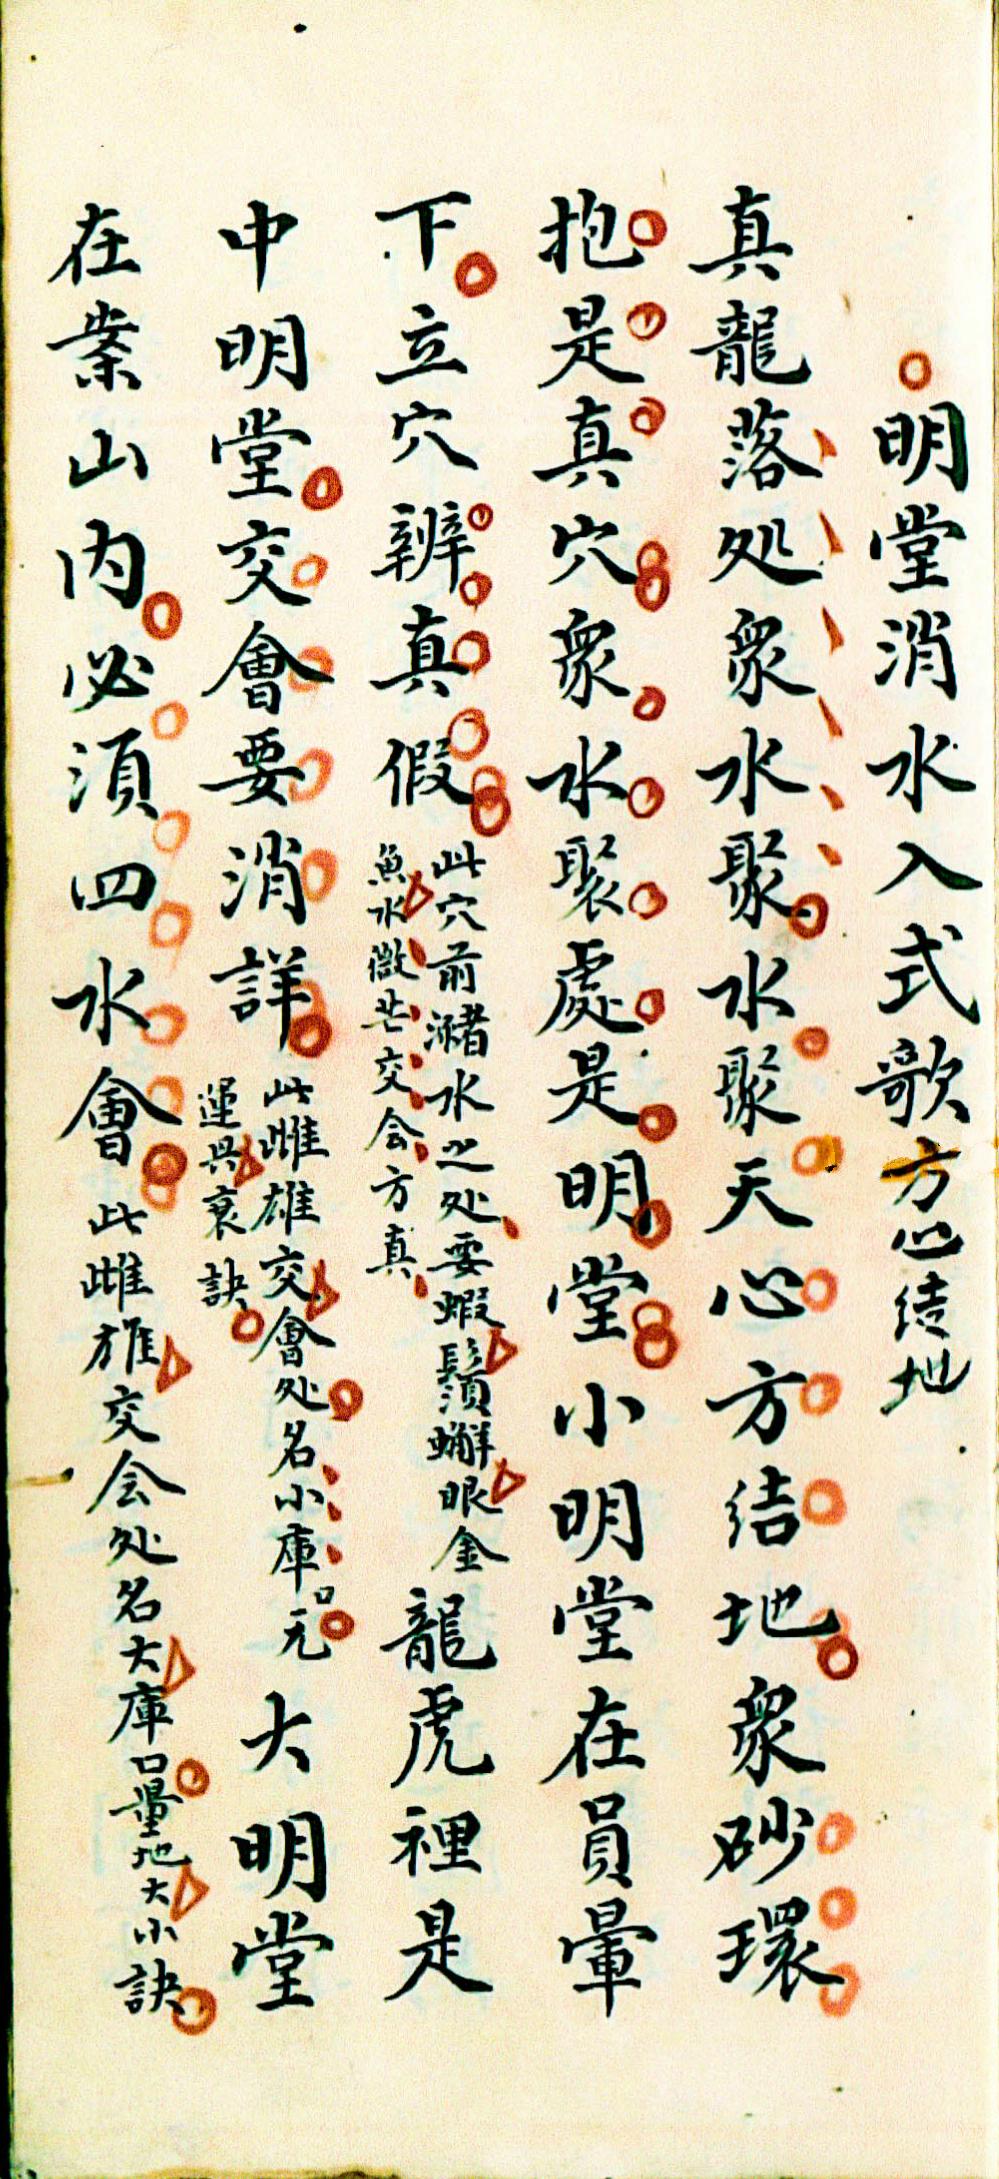 明堂消水入式歌方心结地
真龍落处眾水聚水聚天心方结地眾砂環
抱是真穴眾水聚處是明堂小明堂在員暈
下立穴辨真假此穴前潴水之处要蝦鬚蠏眼金
魚水微茫交会方真龍虎裡是
中明堂交會要消詳此雌雄交會处名小庫口元
運興衰訣大明堂
在案山内必須四水會此雌雄交会处名大庫口量地大小訣